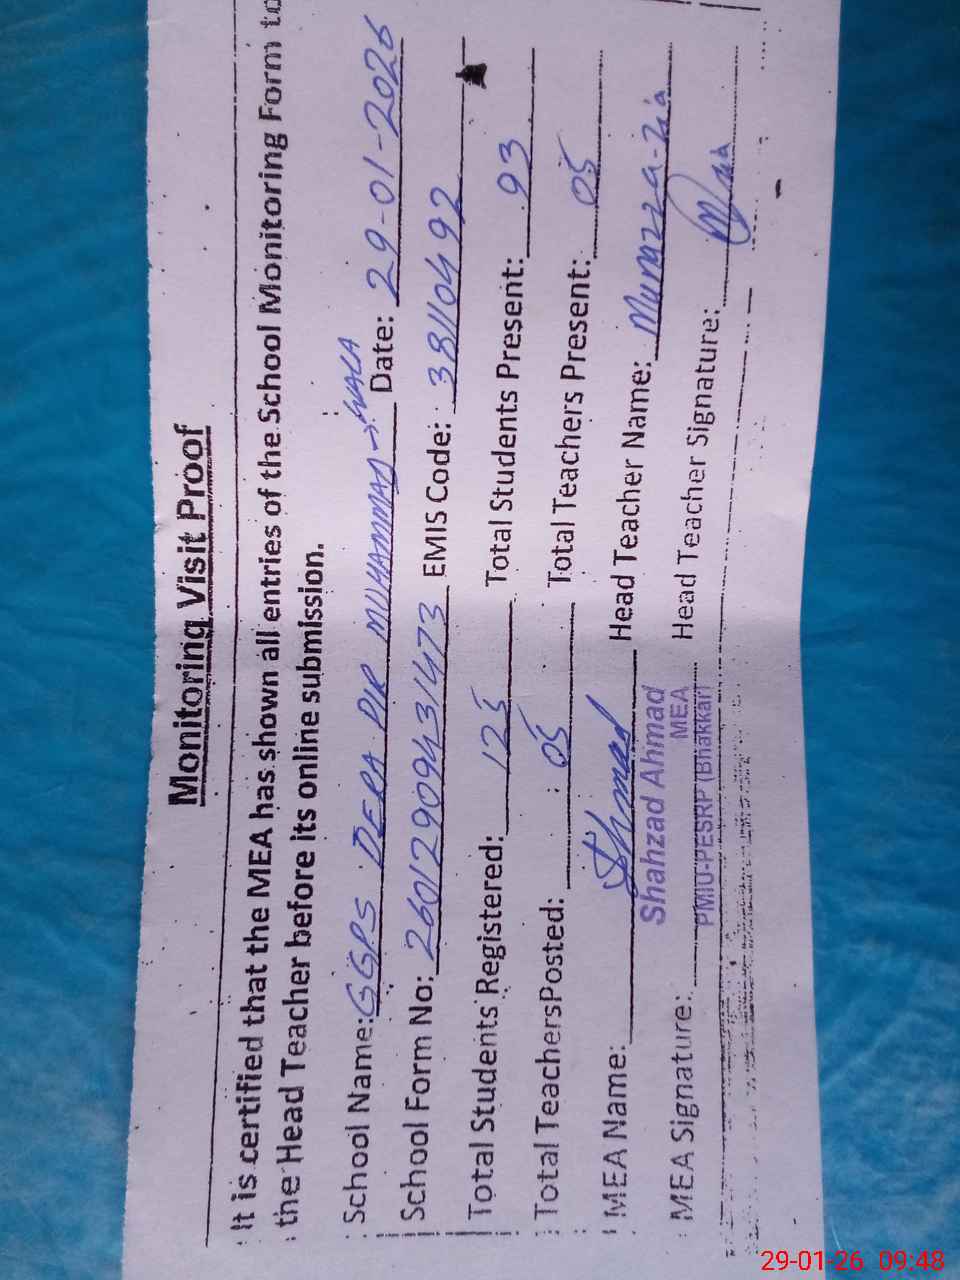 Monitoring Visit Proof
It is certified that the MEA has shown all entries of the School Monitoring Form to
the Head Teacher before its online submission.
School Name: GGPS DERA PIR MUHAMMAD→WALA Date: 29-01-2026
School Form No: 2601290943 1473 EMIS Code: 38110492
Total Students Registered: 125 Total Students Present: 93
Total Teachers Posted: 05 Total Teachers Present: 05
MEA Name: Head Teacher Name: Munazza-Zia
Shahzad Ahmad
MEA
MEA Signature: PMIU-PESRP (Bhakkar) Head Teacher Signature:
29-01-26 09:48